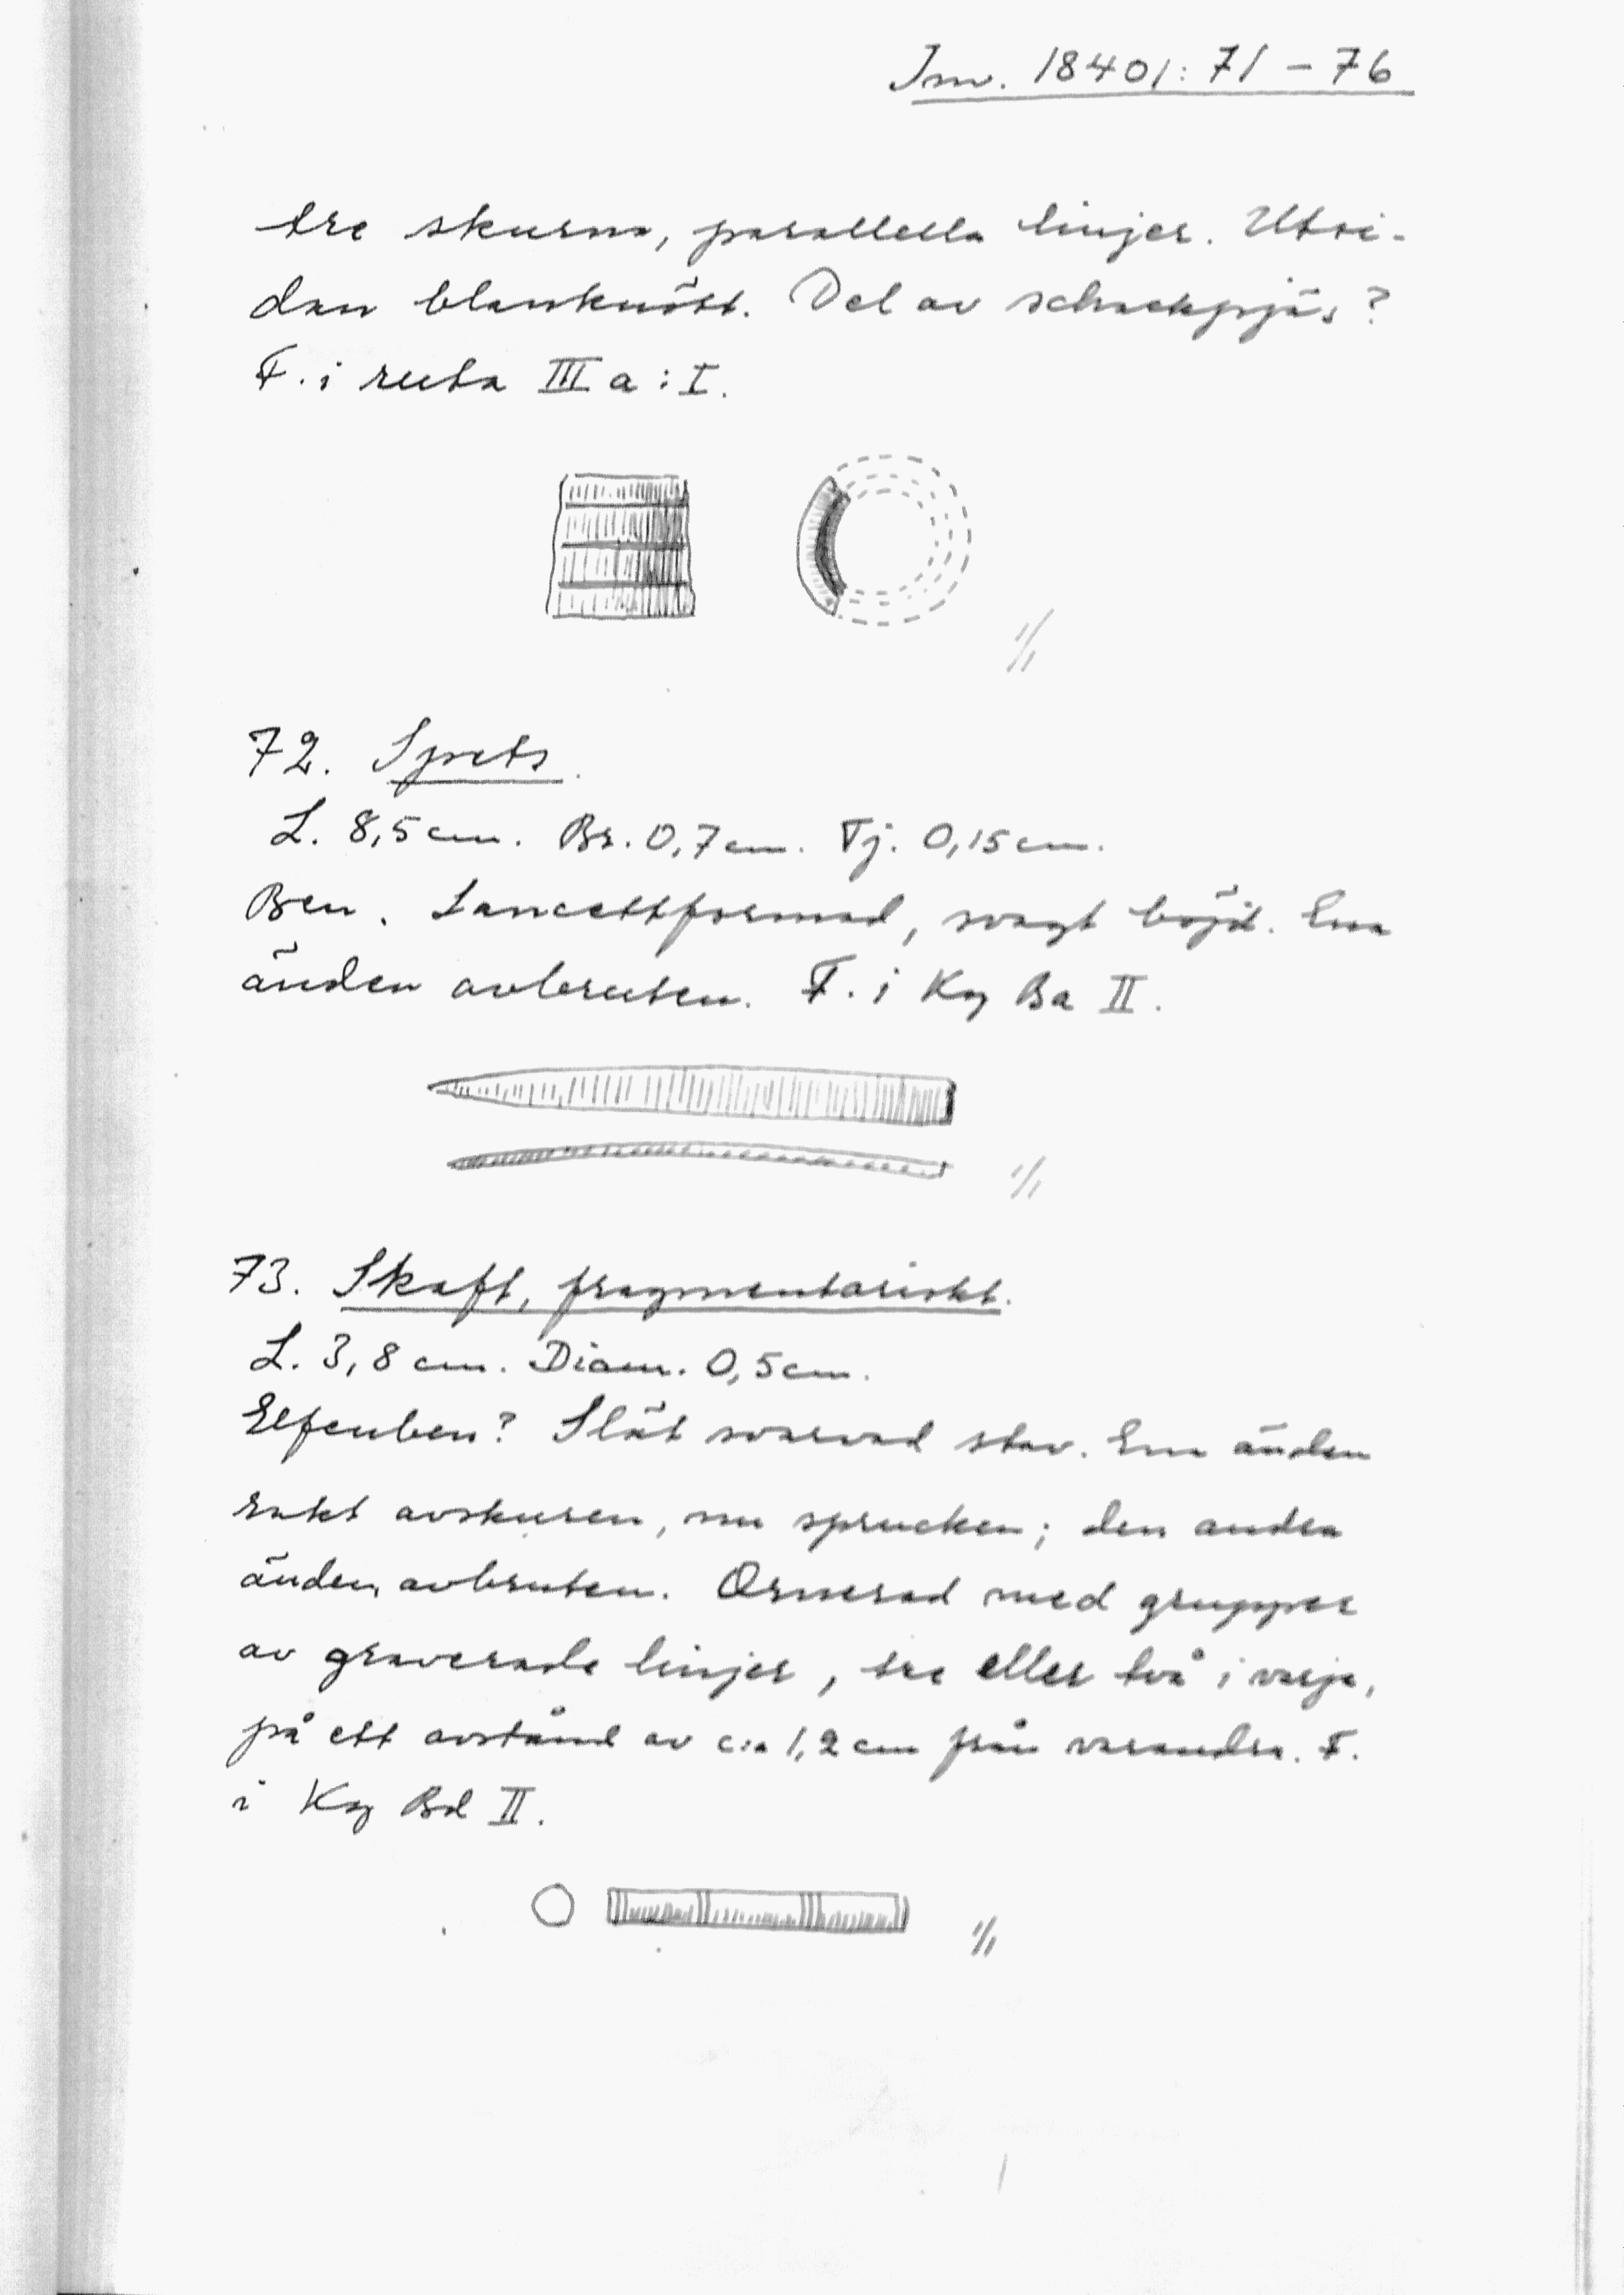 Inv. 18401: 71 – 76
tre skurna, parallella linjer. Utsi-
dan blanknött. Del av schackpjäs?
F. i ruta III a : I.
1/1
72. Spets.
L. 8,5 cm. Br. 0,7 cm. Tj. 0,15 cm.
Ben. Lancettformad, svagt böjd. Ena
änden avbruten. F. i Kv Ba II.
1/1
73. Skaft, fragmentariskt.
L. 3,8 cm. Diam. 0,5 cm.
Elfenben? Slät svarvad stav. Ena änden
rakt avskuren, nu sprucken; den andra
änden avbruten. Ornerad med grupper
av graverade linjer, tre eller två i varje,
på ett avstånd av c:a 1,2 cm från varandra. F.
i Kv Bd II.
1/1